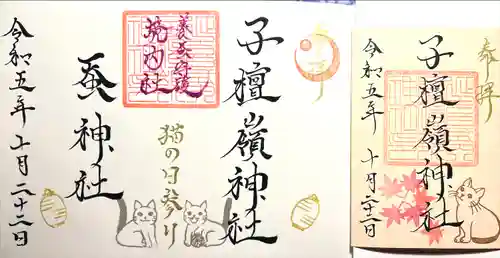 子檀嶺神社
猫の日参り
蚕神社
令和五年十月二十二日
奉拝
子檀嶺神社
令和五年 十月二十二日